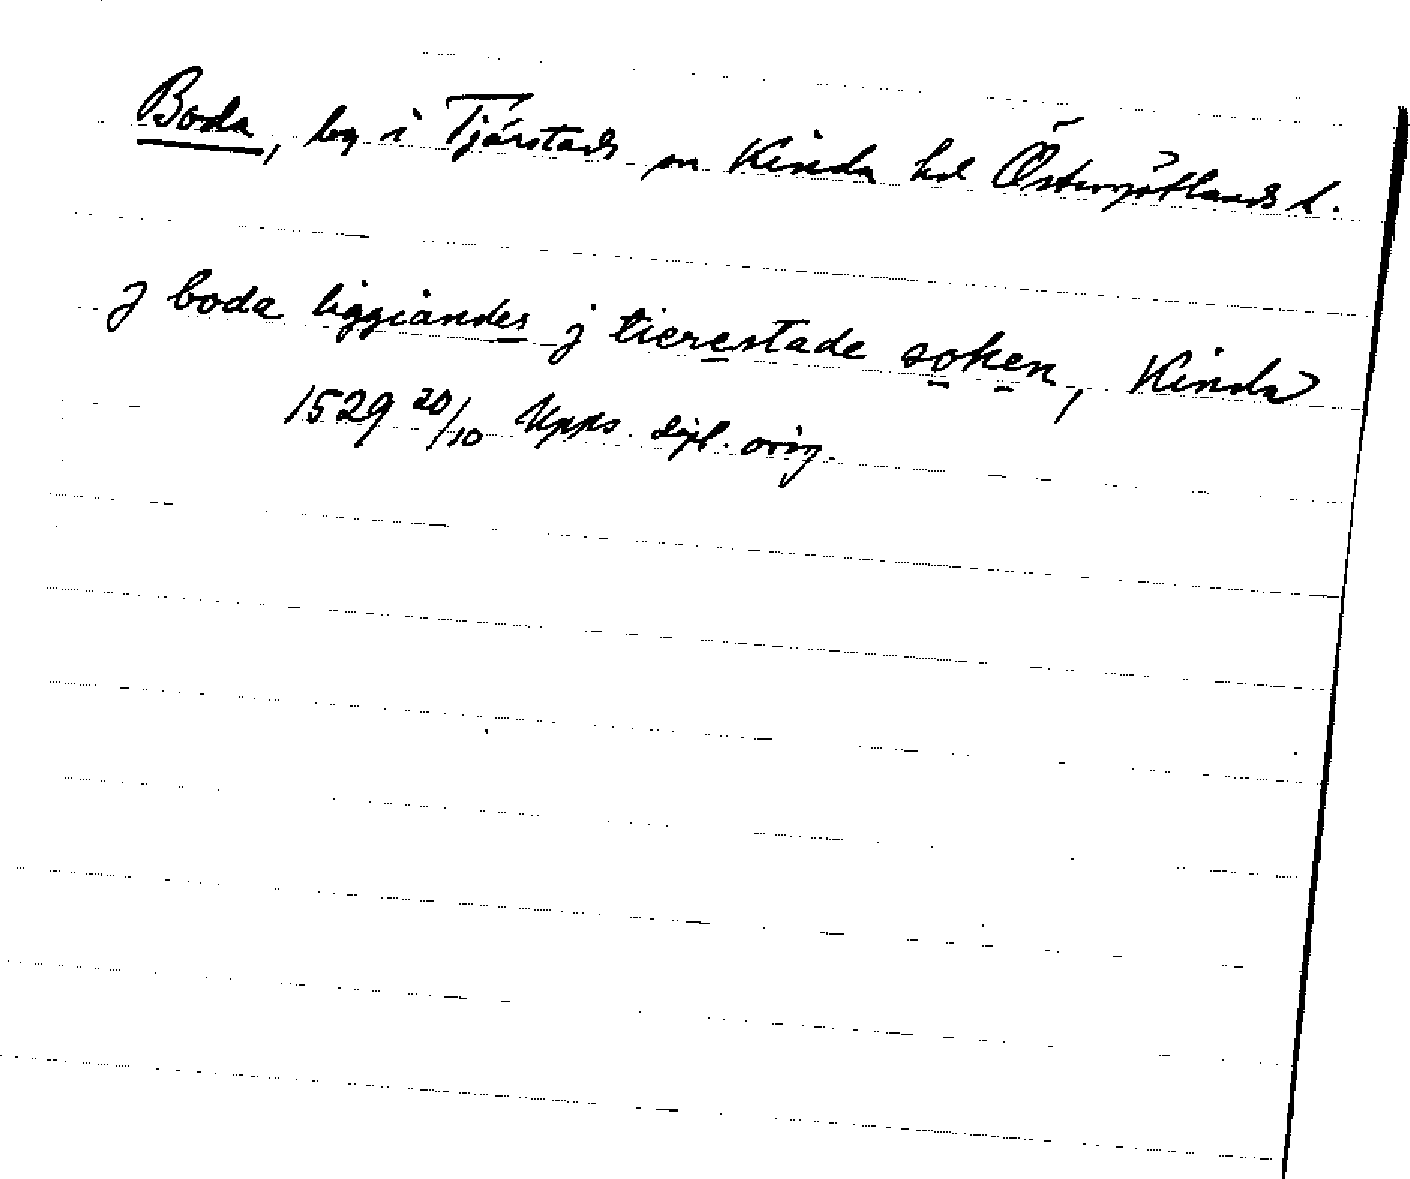 Boda, by i Tjärstads sn Kinda hd Östergötlands l.
j boda liggiandes j tierestade soken, Kinda
1529 20/10 Upps. dipl. orig.